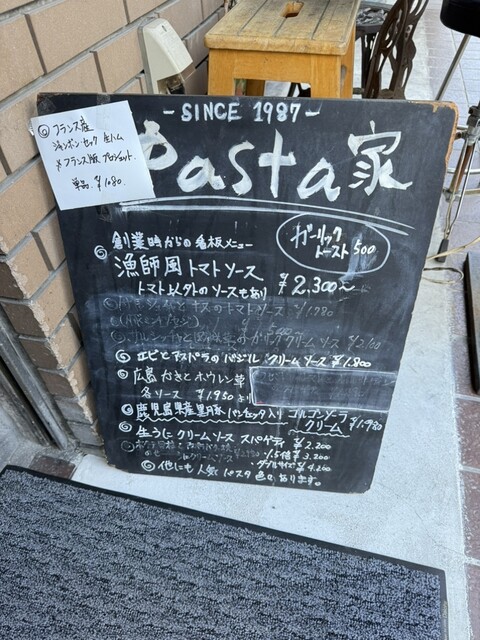 ◎フランス産
ジャンボン・セック 生ハム
※フランス版 プロシュット
単品 ¥1080.
-SINCE 1987-
Pasta家
創業時からの看板メニュー
ガーリック
トースト 500
漁師風 トマトソース
¥2,300～
トマト以外のソースもあり
ナスのトマトソース ¥1,780
クリームソース ¥2,100
エビとアスパラのバジル クリームソース ¥1,800
広島 かきとホウレン草
各ソース ¥1,950より
鹿児島県産黒豚 パンセッタ入り ゴルゴンゾーラ
クリーム ¥1,980
生うにクリームソース スパゲティ ¥2,200
1.5倍 ¥3,200
ダブルサイズ ¥4,200
◎他にも人気パスタ色々あります。